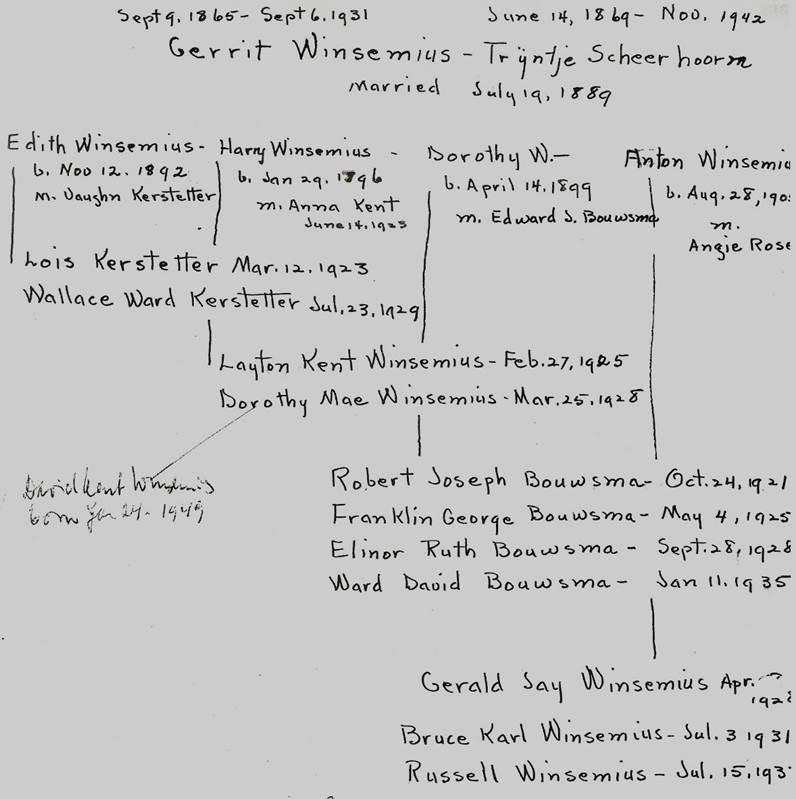 Sept 9, 1865 - Sept 6, 1931 June 14, 1869 - Nov. 1942
Gerrit Winsemius - Trijntje Scheerhoorn
Married July 19, 1889
Edith Winsemius - Harry Winsemius - Dorothy W. - Anton Winsemiu
b. Nov 12. 1892 b. Jan 29. 1896 b. April 14. 1899 b. Aug. 28, 190
m. Vaughn Kerstetter m. Anna Kent m. Edward J. Bouwsma m.
June 14. 1923 Angie Rose
Lois Kerstetter Mar. 12, 1923
Wallace Ward Kerstetter Jul, 23, 1929
Layton Kent Winsemius - Feb. 27, 1925
Dorothy Mae Winsemius - Mar. 25, 1928
David Kent Winsemius
born Jan 24 - 1949
Robert Joseph Bouwsma - Oct. 24, 1921
Franklin George Bouwsma - May 4, 1925
Elinor Ruth Bouwsma - Sept. 28, 1928
Ward David Bouwsma - Jan 11. 1935
Gerald Jay Winsemius Apr.
192
Bruce Karl Winsemius - Jul. 3 1931
Russell Winsemius - Jul. 15, 193